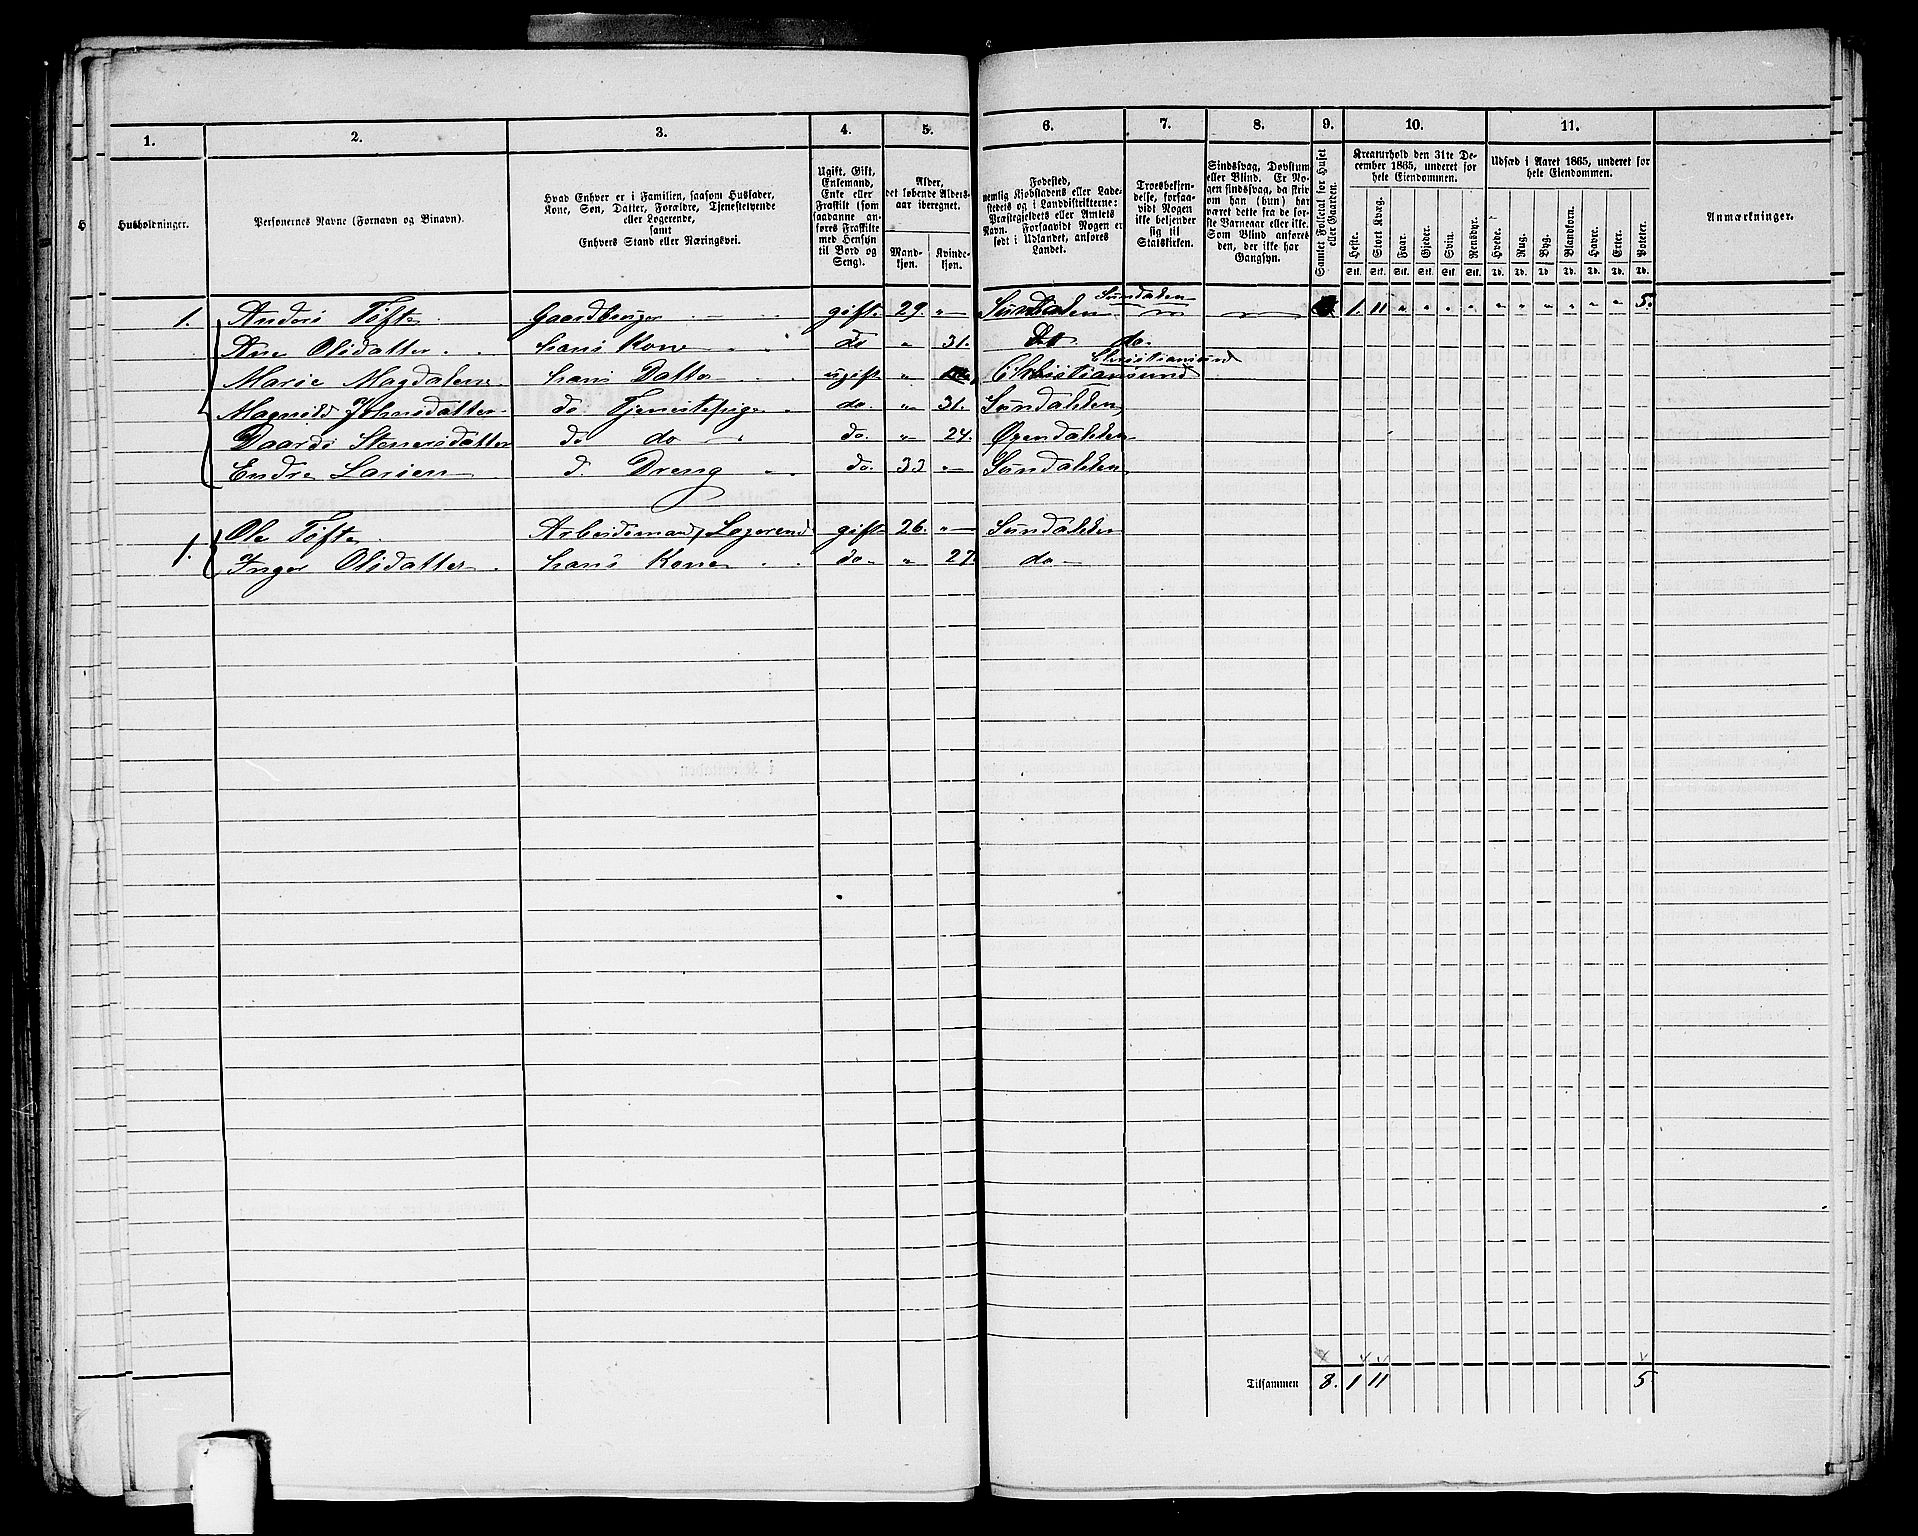 1. 2. 3. 4. 5. 6. 7. 8. 9. 10. 11.
Husholdninger.
Personernes Navne (Fornavn og Binavn).
Hvad Enhver er i Familien, saasom Husfader,
Kone, Søn, Datter, Forældre, Tjenestetyende
eller Logerende,
samt
Enhvers Stand eller Næringsvei.
Ugift, Gift,
Enkemand,
Enke eller
Fraskilt (som
saadanne an-
føres Fraskilte
med Hensyn
til Bord og
Seng).
Alder,
det løbende Alders-
aar iberegnet.
Mand-
kjøn.
Kvinde-
kjøn.
Fødested,
nemlig Kjøbstadens eller Lade-
stedets og i Landdistrikterne:
Præstegjeldets eller Amtets
Navn. Forsaavidt Nogen er
født i Udlandet, anføres
Landet.
Troesbekjen-
delse, forsaa-
vidt Nogen
ikke bekjender
sig til
Statskirken.
Sindssvag, Døvstum
eller Blind. Er No-
gen sindssvag, da skri-
ves om han (hun) har
været dette fra de før-
ste Barneaar eller ikke.
Som Blind anføres
den, der ikke har
Gangsyn.
Samlet Folketal for Huset
eller Gaarden.
Kreaturhold den 31te De-
cember 1865, underet for
hele Eiendommen.
Heste. Stort Kvæg. Faar. Gjeder. Svin. Rensdyr.
Stk. Stk. Stk. Stk. Stk. Stk.
Udsæd i Aaret 1865, underet for
hele Eiendommen.
Hvede. Rug. Byg. Blandkorn. Havre. Erter. Poteter.
Td. Td. Td. Td. Td. Td. Td.
Anmærkninger.
1. Anders Tøfte Gaardbruger gift 29. „ Sundalen Sundalen 1. 11 „ „ „ „ „ „ „ „ „ „ 5.
Ane Olsdatter hans Kone do „ 31. do.
Marie Magdalene hans Datter ugift „ Christiansund Christiansund
Magnild Johnsdatter do Tjenestepige do. „ 31. Sundalen
Baardi Stenersdatter do do do. „ 24. Øxendalen
Endre Larsen d. Dreng do. 33 „ Sundalen
1. Ole Tøfte Arbeidsmand, Logerend gift 26. „ Sundalen
Inger Olsdatter hans Kone do „ 27. do
Tilsammen 8. 1 11 5